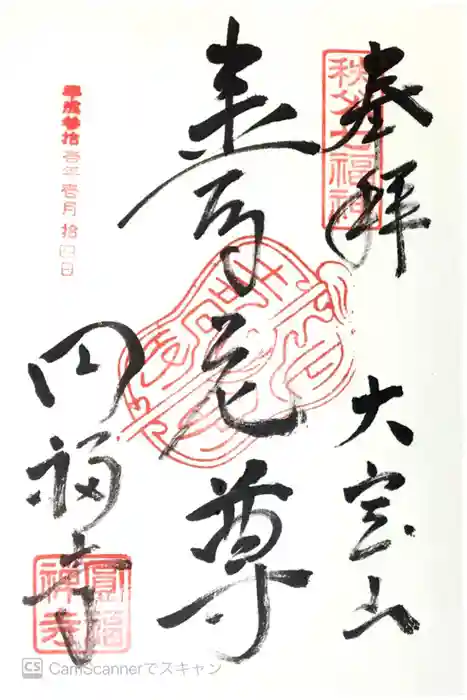 秩父七福神
奉拝
大宝山
壽老尊
円福寺
圓福
禅寺
平成参拾壱年壱月拾四日
CS CamScannerでスキャン